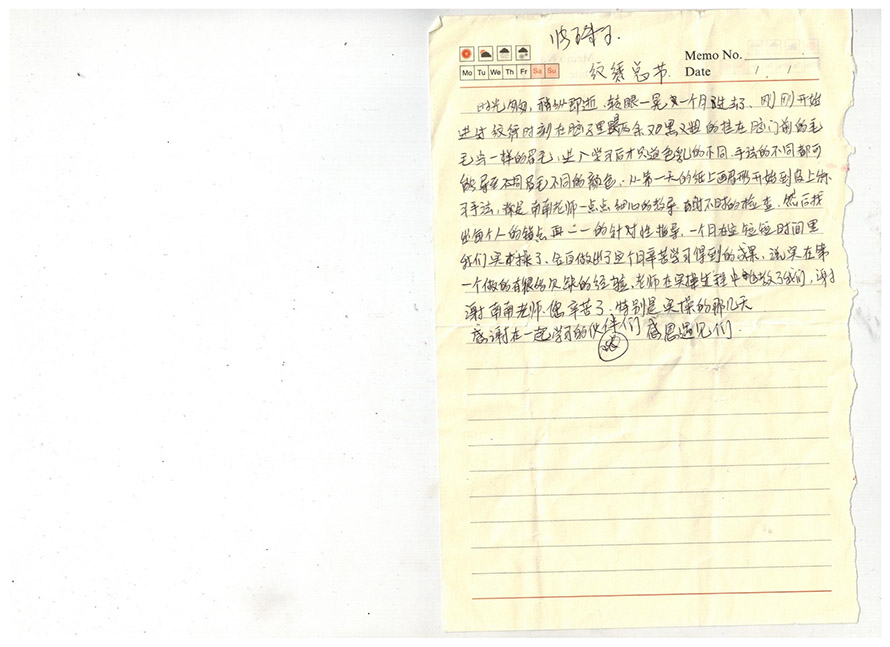 Memo No.
Mo Tu We Th Fr Sa Su
纹绣总节 Date 1 . 1
时光匆匆，稍纵即逝，转眼一晃一个月过去了，刚刚开始
进纹绣时刻在脑又黑又粗的挂在脑门前的毛
毛虫一样的眉毛，进入学习后才知道色乳的不同，手法的不同都可
能导至不同眉毛不同的颜色，从第一天的纸上画眉形开始到皮上练
习手法，都是南南老师一点点细心的教导，时不时的检查，然后找
出每个人的错点再一一的针对性指导，一个月在这短短时间里
我们实操了，自做出了这个月辛苦学习得到的成果，说实在第
一个做的有很多欠缺的经验，老师在实操过程中教了我们，谢
谢南南老师，您辛苦了，特别是实操的那几天
感谢在一起学习的伙伴们 感恩遇见们